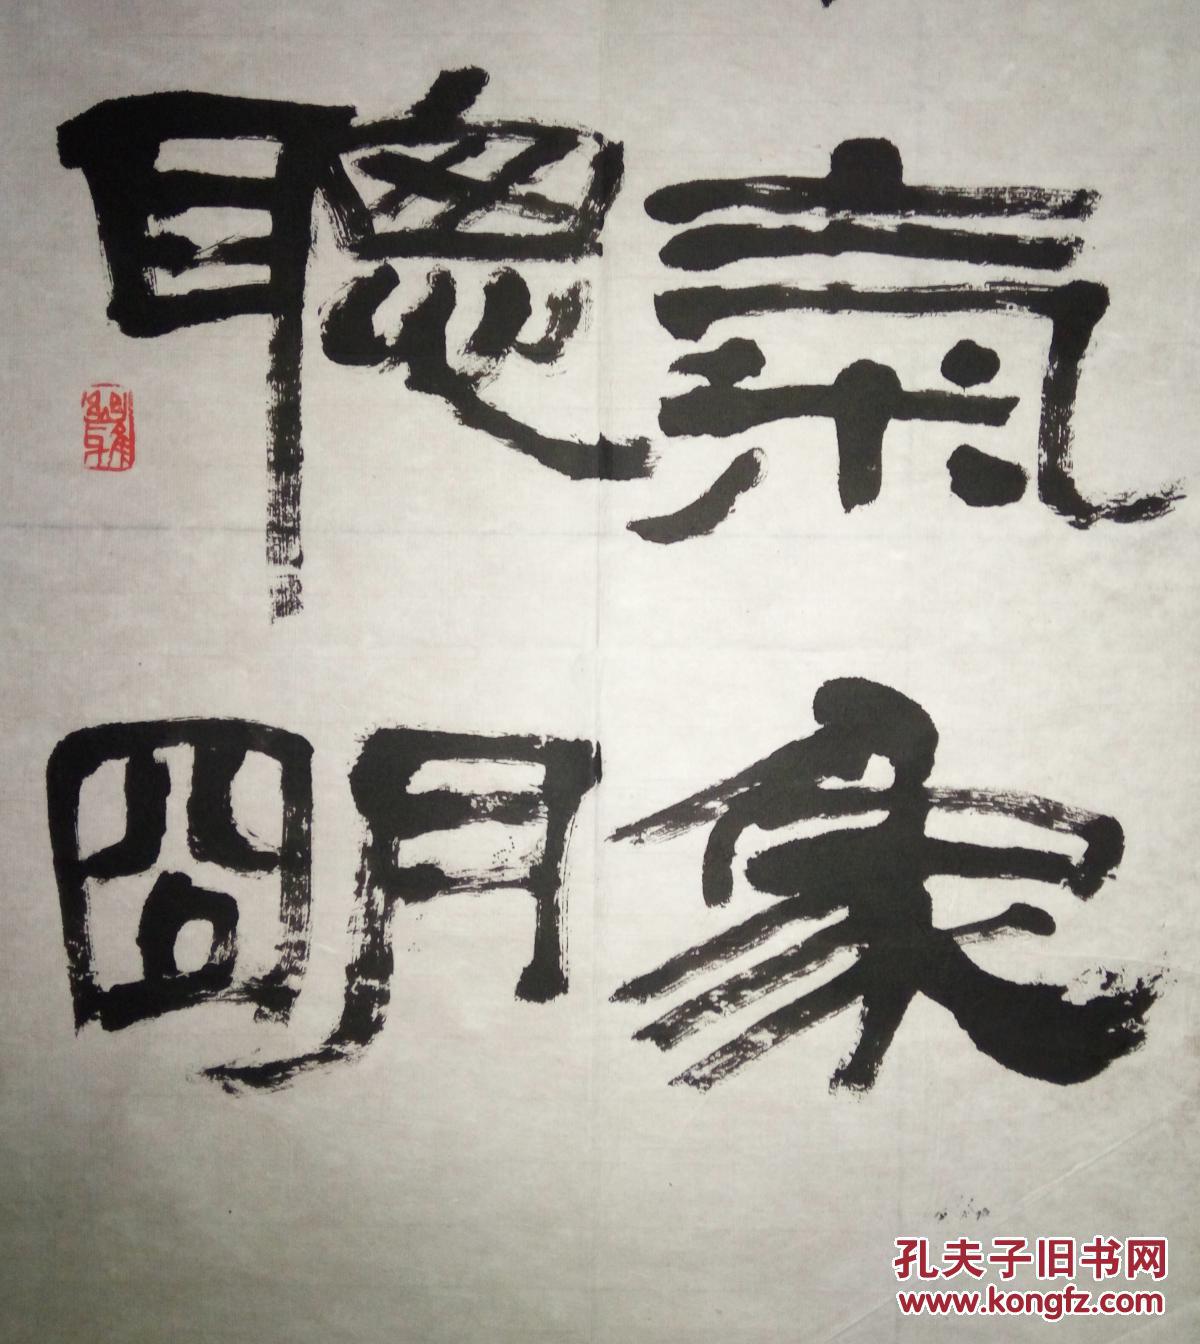 氣象
聰明
孔夫子旧书网
www.kongfz.com